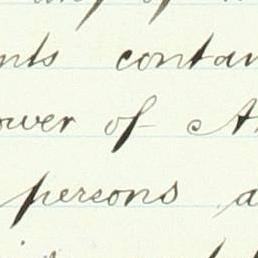 of
nts contain
ower of A
persons a